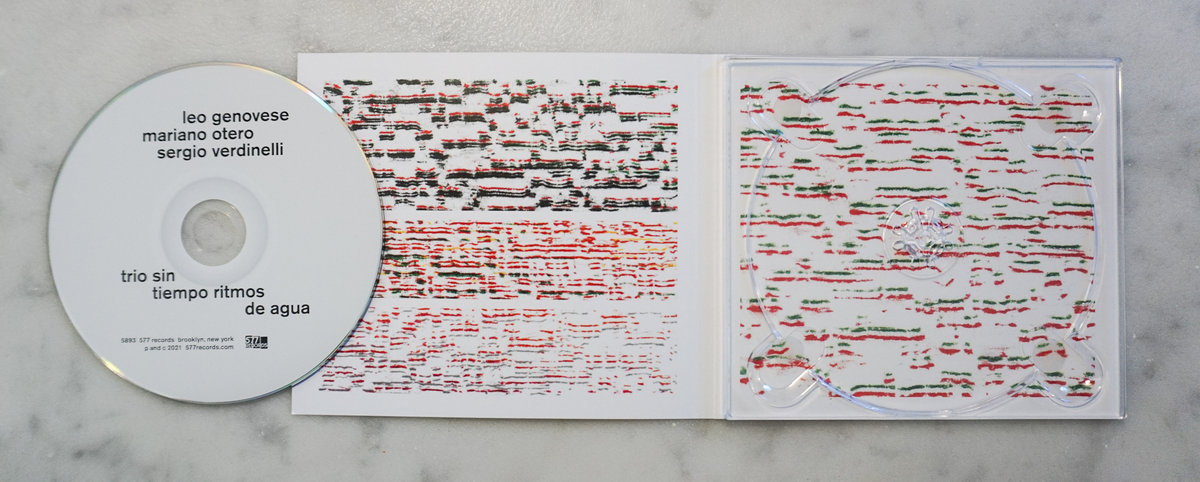 leo genovese
mariano otero
sergio verdinelli
trio sin
tiempo ritmos
de agua
5893 577 records brooklyn, new york
p and c 2021 577records.com
577
RECORDS